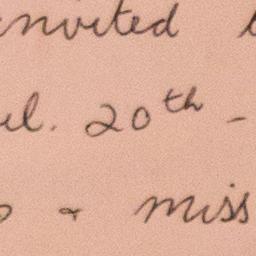 invited
el. 20th -
& miss